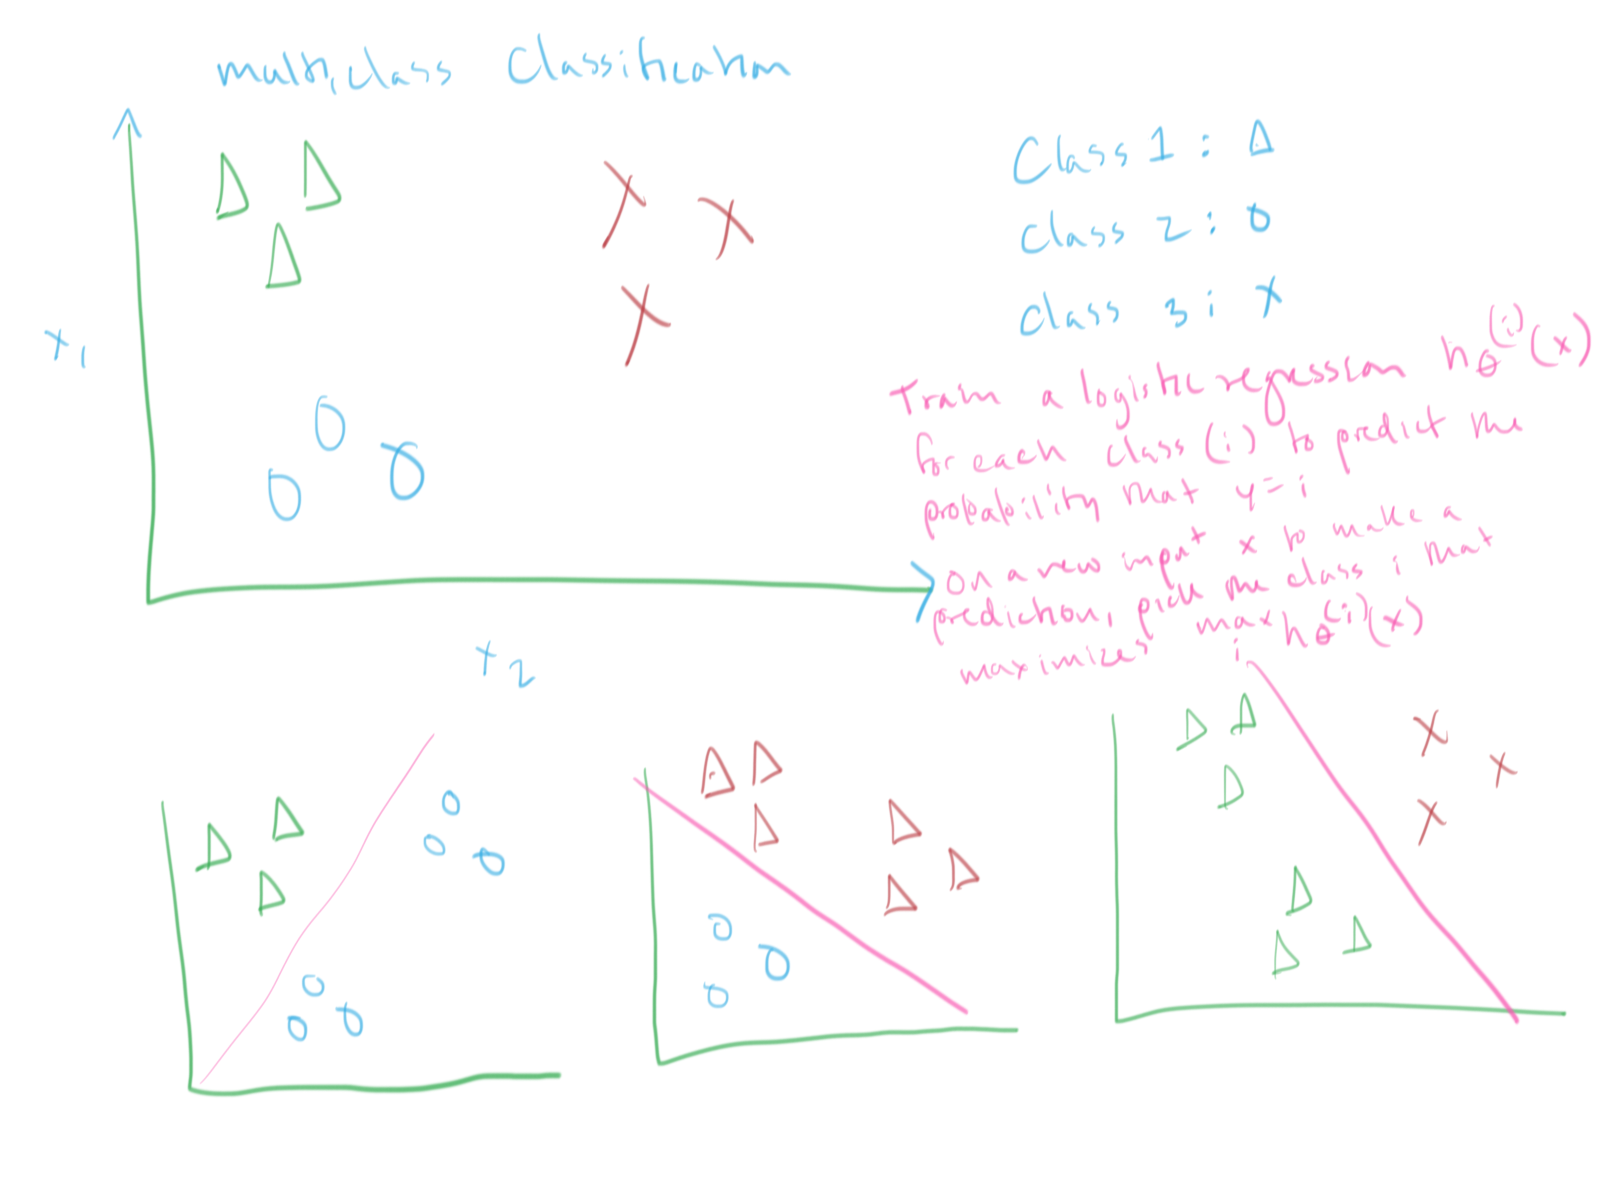 multiclass Classification
Class 1 : Δ
Class 2 : O
Class 3 : X
x₁
Train a logistic regression h_θ^(i)(x)
for each class (i) to predict the
probability that y = i
on a new input x to make a
prediction, pick the class i that
maximizes max_i h_θ^(i)(x)
x₂